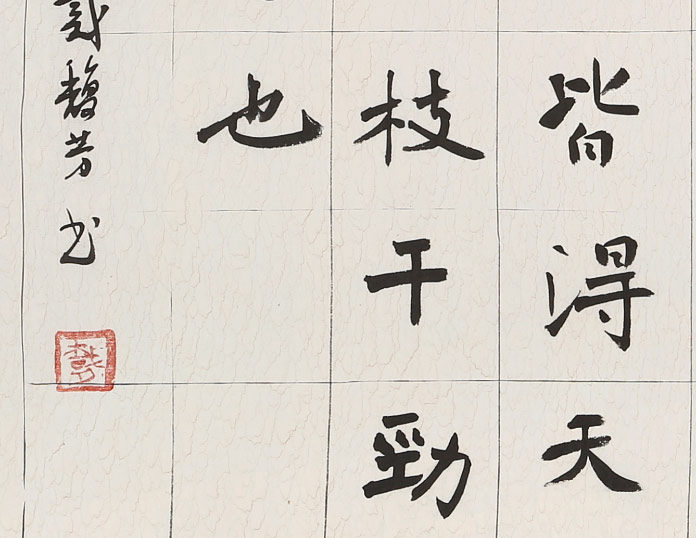 皆得天
枝干勁
也
馥芳书